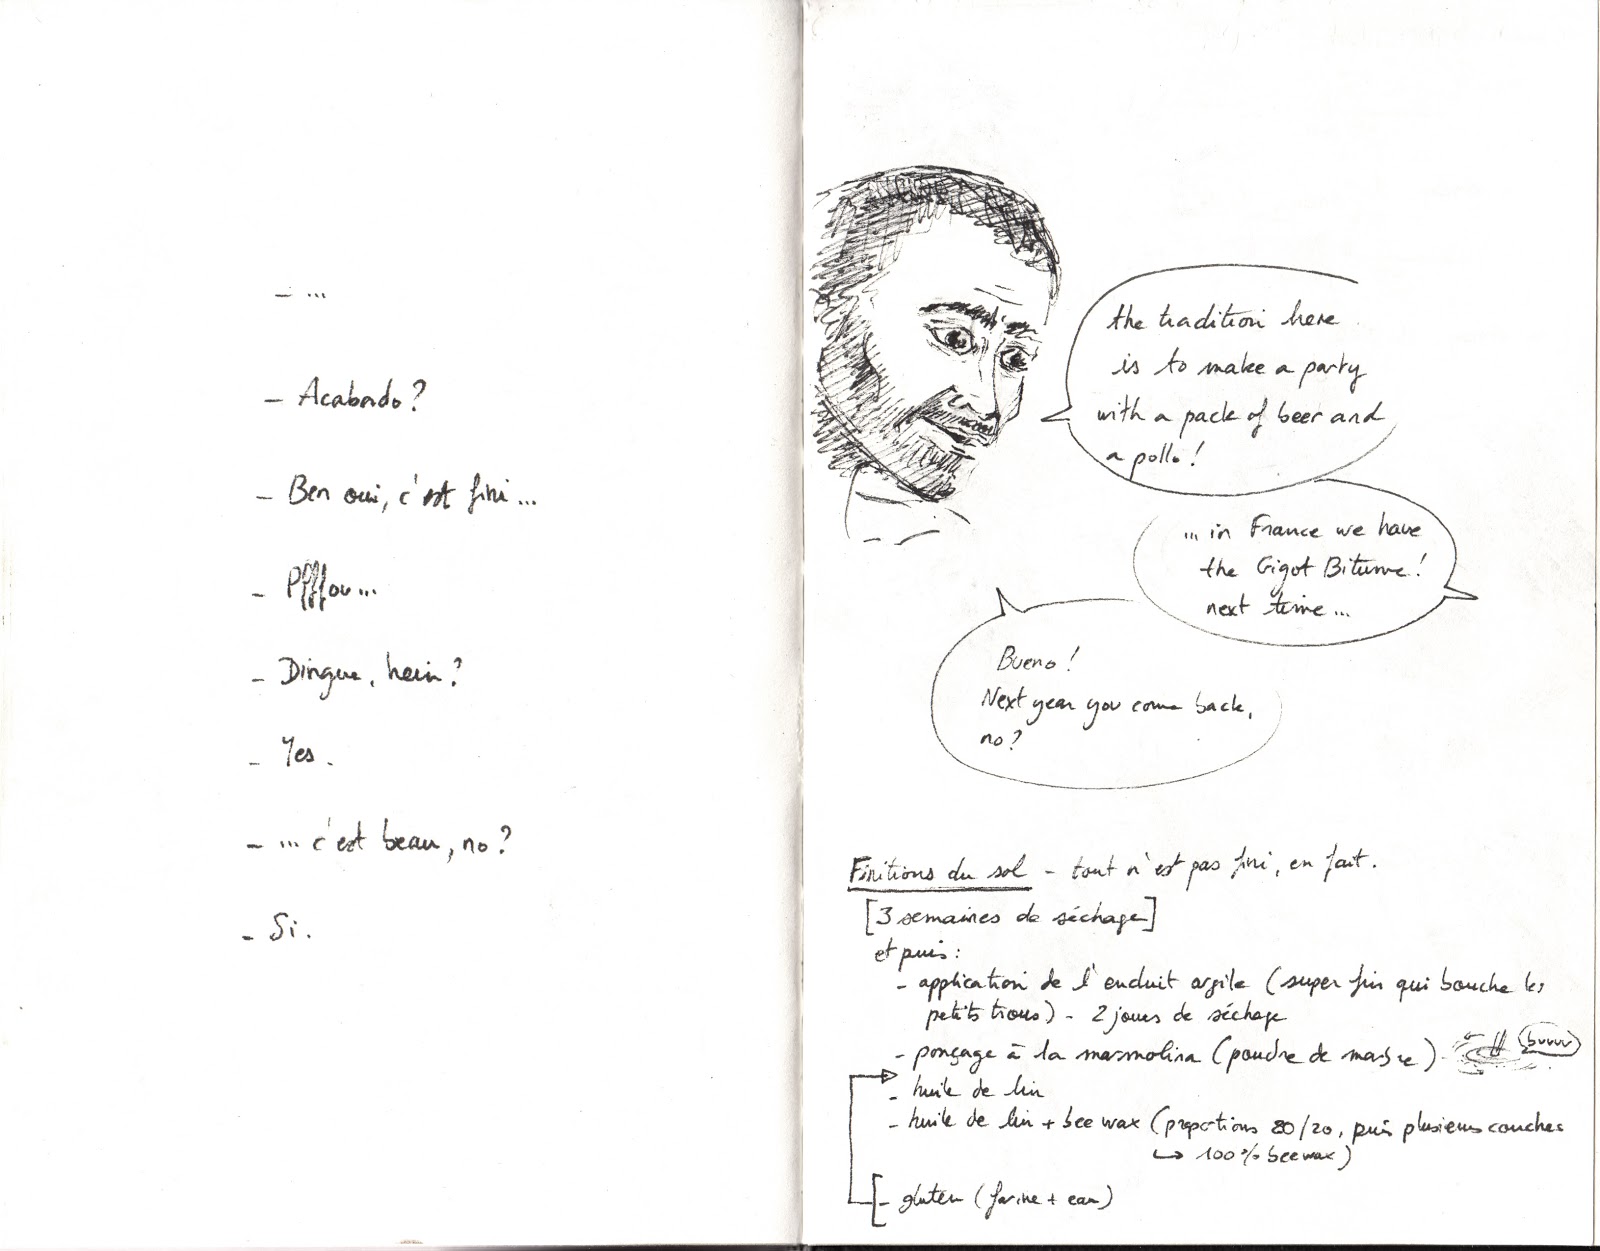 - ...
- Acabado?
- Ben oui, c'est fini...
- Pffffou...
- Dingue, hein?
- Yes.
- ... c'est beau, no?
- Si.
the tradition here
is to make a party
with a pack of beer and
a pollo!
... in France we have
the Gigot Bitume!
next time...
Bueno!
Next year you come back,
no?
Finitions du sol - tout n'est pas fini, en fait.
[3 semaines de séchage]
et puis:
- application de l'enduit argile (super fin qui bouche les
petits trous) - 2 jours de séchage
- ponçage à la marmolina (poudre de marbre)
bvvvv
- huile de lin
- huile de lin + bee wax (proportions 80/20, puis plusieurs couches
↪ 100% beewax)
[- gluten (farine + eau)